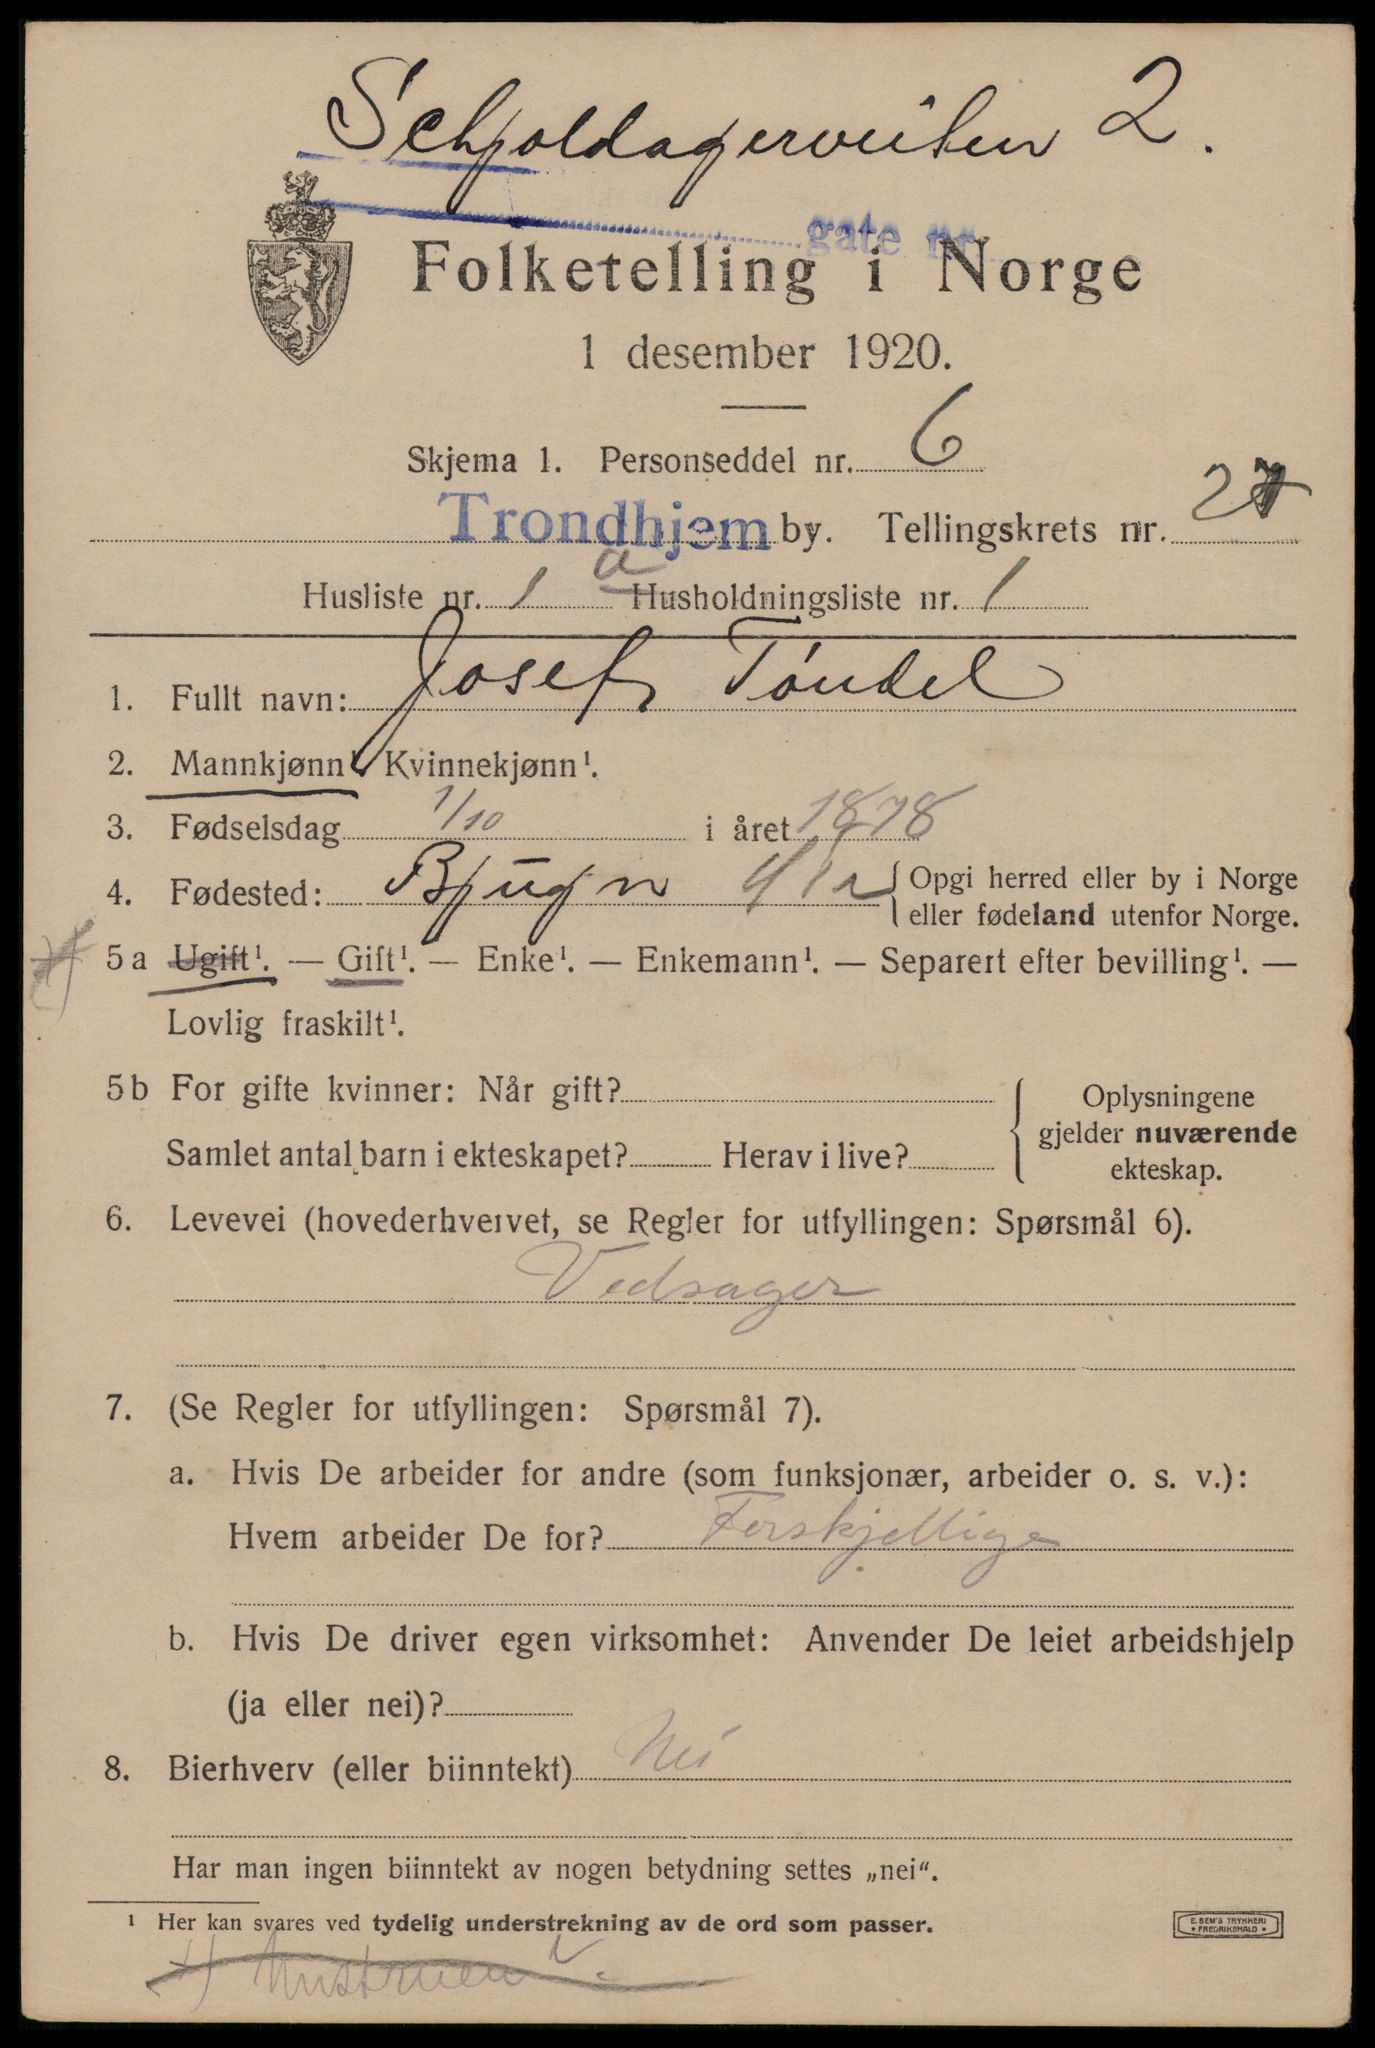 Schjoldagerveiten 2.
gate nr.
Folketelling i Norge
1 desember 1920.
Skjema 1. Personseddel nr. 6
Trondhjem by. Tellingskrets nr. 27
Husliste nr. 1 a Husholdningsliste nr. 1
1. Fullt navn: Josef Tøndel
2. Mannkjønn¹. Kvinnekjønn¹.
3. Fødselsdag 1/10 i året 1878
4. Fødested: Bjugn { Opgi herred eller by i Norge
eller fødeland utenfor Norge.
5a Ugift¹. — Gift¹. — Enke¹. — Enkemann¹. — Separert efter bevilling¹. —
Lovlig fraskilt¹.
5b For gifte kvinner: Når gift? { Oplysningene
gjelder nuværende
ekteskap.
Samlet antal barn i ekteskapet? Herav i live?
6. Levevei (hovederhvervet, se Regler for utfyllingen: Spørsmål 6).
Vedsager
7. (Se Regler for utfyllingen: Spørsmål 7).
a. Hvis De arbeider for andre (som funksjonær, arbeider o. s. v.):
Hvem arbeider De for? Forskjellige
b. Hvis De driver egen virksomhet: Anvender De leiet arbeidshjelp
(ja eller nei)?
8. Bierhverv (eller biinntekt) Nei
Har man ingen biinntekt av nogen betydning settes „nei“.
¹ Her kan svares ved tydelig understrekning av de ord som passer.
E. SEM'S TRYKKERI
FREDRIKSHALD